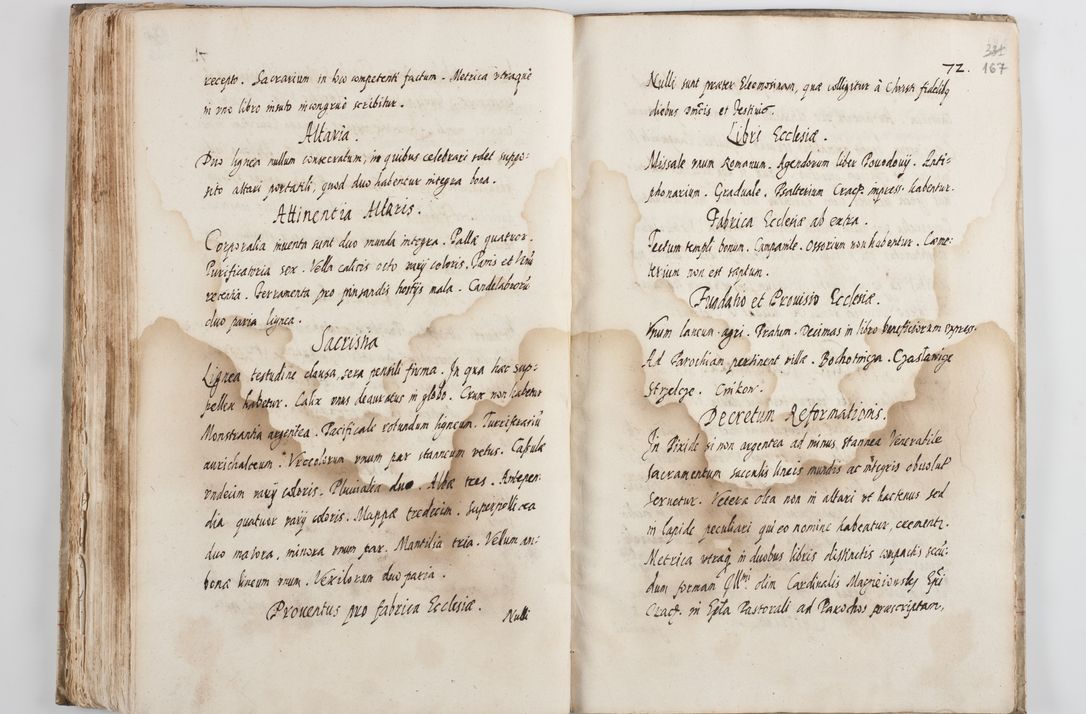 recepto. Sacrarium in hoc competenti factum. Metrica utraque
in uno libro insuto incongruè scribitur.
Altaria.
Duo lignea nullum consecratum, in quibus celebrari solet suppo-
sito altari portatili, quod duo habentur integra bona.
Attinentia Altaris.
Corporalia inventa sunt duo munda integra. Pallæ quatuor.
Purificatoria sex. Vella calicis octo varij coloris. Panis et Vinū
recentia. Ferramenta pro pinsandis hostijs mala. Candelabrorū
duo paria lignea.
Sacristia
Lignea testudine clausa, sera pensili firma. In qua hæc sup-
pellex habetur. Calix unus deauratus in globo. Crux non habetur
Monstrantia argentea. Pacificale rotundum ligneum. Turris
aurichalceum. Urceolorum unum par stanneum vetus. Casulæ
undecim varij coloris. Pluvialia duo. Albæ tres. Antepen-
dia quatuor varij coloris. Mappæ tredecim. Superpellicea
duo maiora, minora unum par. Mantilia tria. Vellum an-
bonæ lineum unum. Vexilorum duo paria.
Proventus pro fabrica Ecclesiæ.
Nulli
72.
167
Nulli sunt præter Elemosinam, quæ colligitur à Christi fidelibq
diebus Dnicis et Festivis.
Libri Ecclesiæ.
Missale unum Romanum. Agendorum liber Povodovij. Anti-
phonarium. Graduale. Psalterium Crac. impress. habentur.
Fabrica Ecclesiæ ab extra.
Tectum templi bonum. Campanile. Ossorium non habentur. Cæme-
terium non est septum.
Fundatio et Provisio Ecclesiæ.
Unum laneum agri. Pratum. Decimas in libro beneficiorum express.
Ad Parochiam pertinent villæ. Bochotnica. Czesławice
Strzelce. Cinkow.
Decretum Reformationis.
In Pixide si non argentea ad minus stannea Venerabile
Sacramentum succulis lineis mundis ac integris obvolut
servetur. Vetera olea non in altari ut hactenus sed
in lapide peculiari qui eo nomine habeatur, crementr.
Metrica utraq in duobus libris distinctis compactis secū-
dum formam Illmi olim Cardinalis Macieiowsky Epi
Crac. in Epla Pastorali ad Parochos præscriptam,